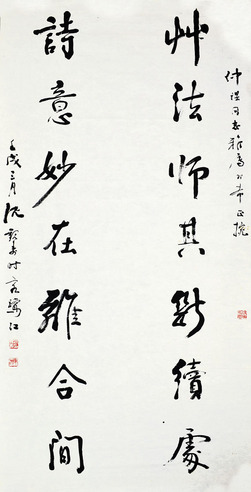 仲同志雅屬希正腕
艸法師其斷續處
詩意妙在離合間
壬戌三月沈覲壽時客鷺江